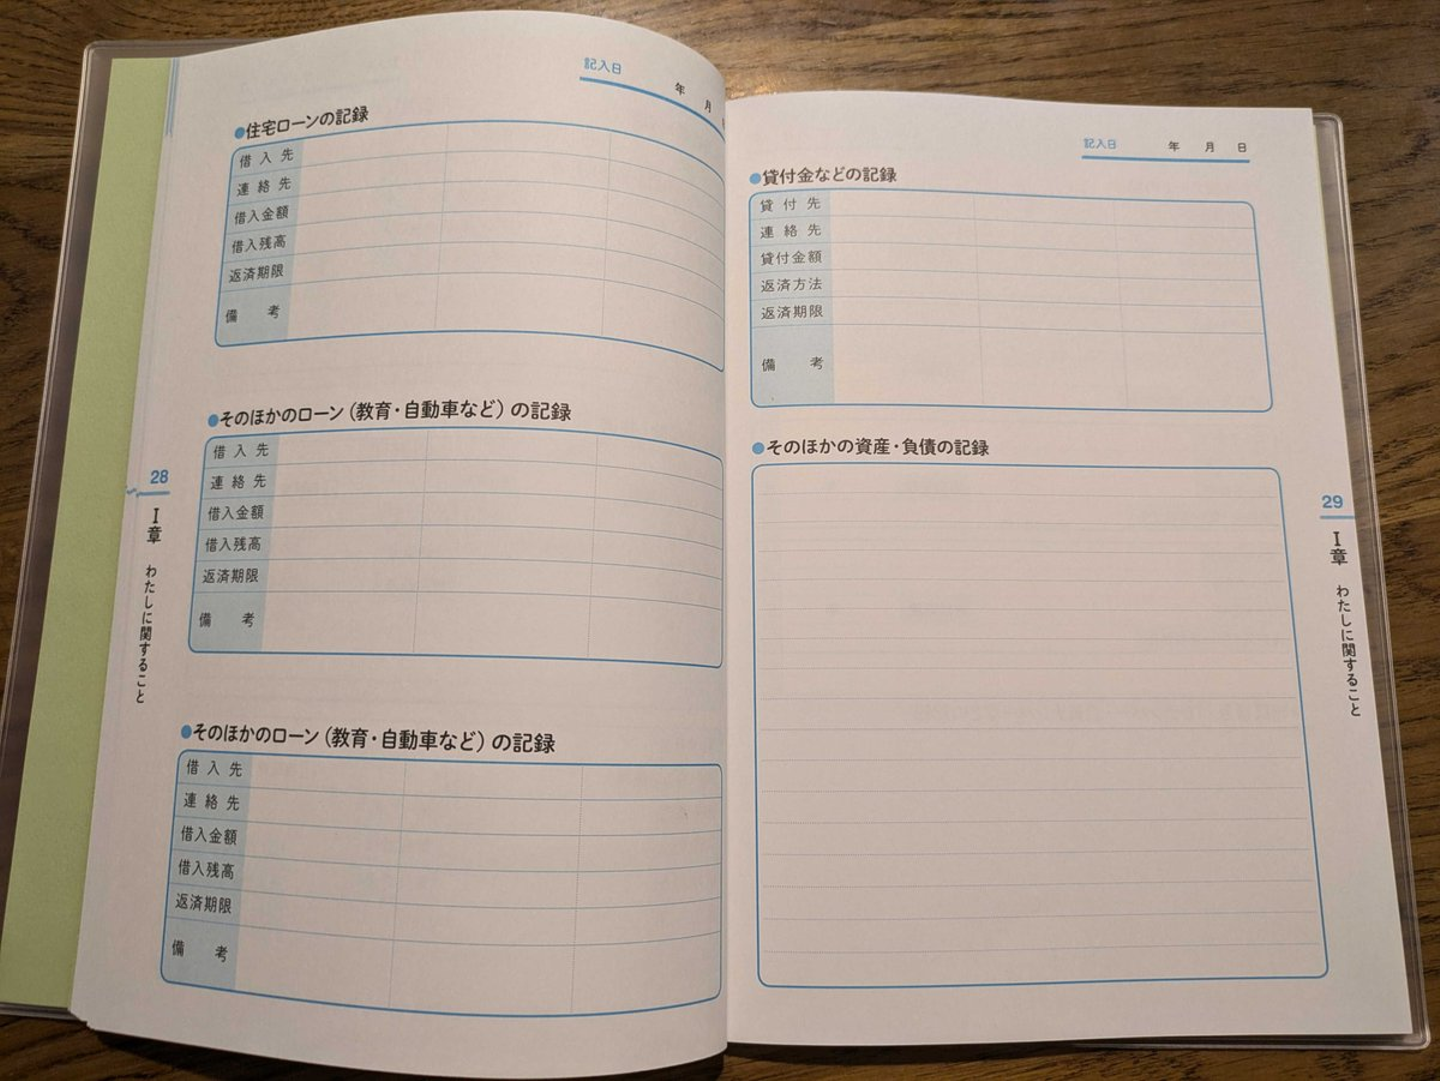 記入日 年 月
●住宅ローンの記録
借入先
連絡先
借入金額
借入残高
返済期限
備考
●そのほかのローン(教育・自動車など)の記録
借入先
連絡先
借入金額
借入残高
返済期限
備考
●そのほかのローン(教育・自動車など)の記録
借入先
連絡先
借入金額
借入残高
返済期限
備考
28
I章 わたしに関すること
記入日 年 月 日
●貸付金などの記録
貸付先
連絡先
貸付金額
返済方法
返済期限
備考
●そのほかの資産・負債の記録
29
I章 わたしに関すること